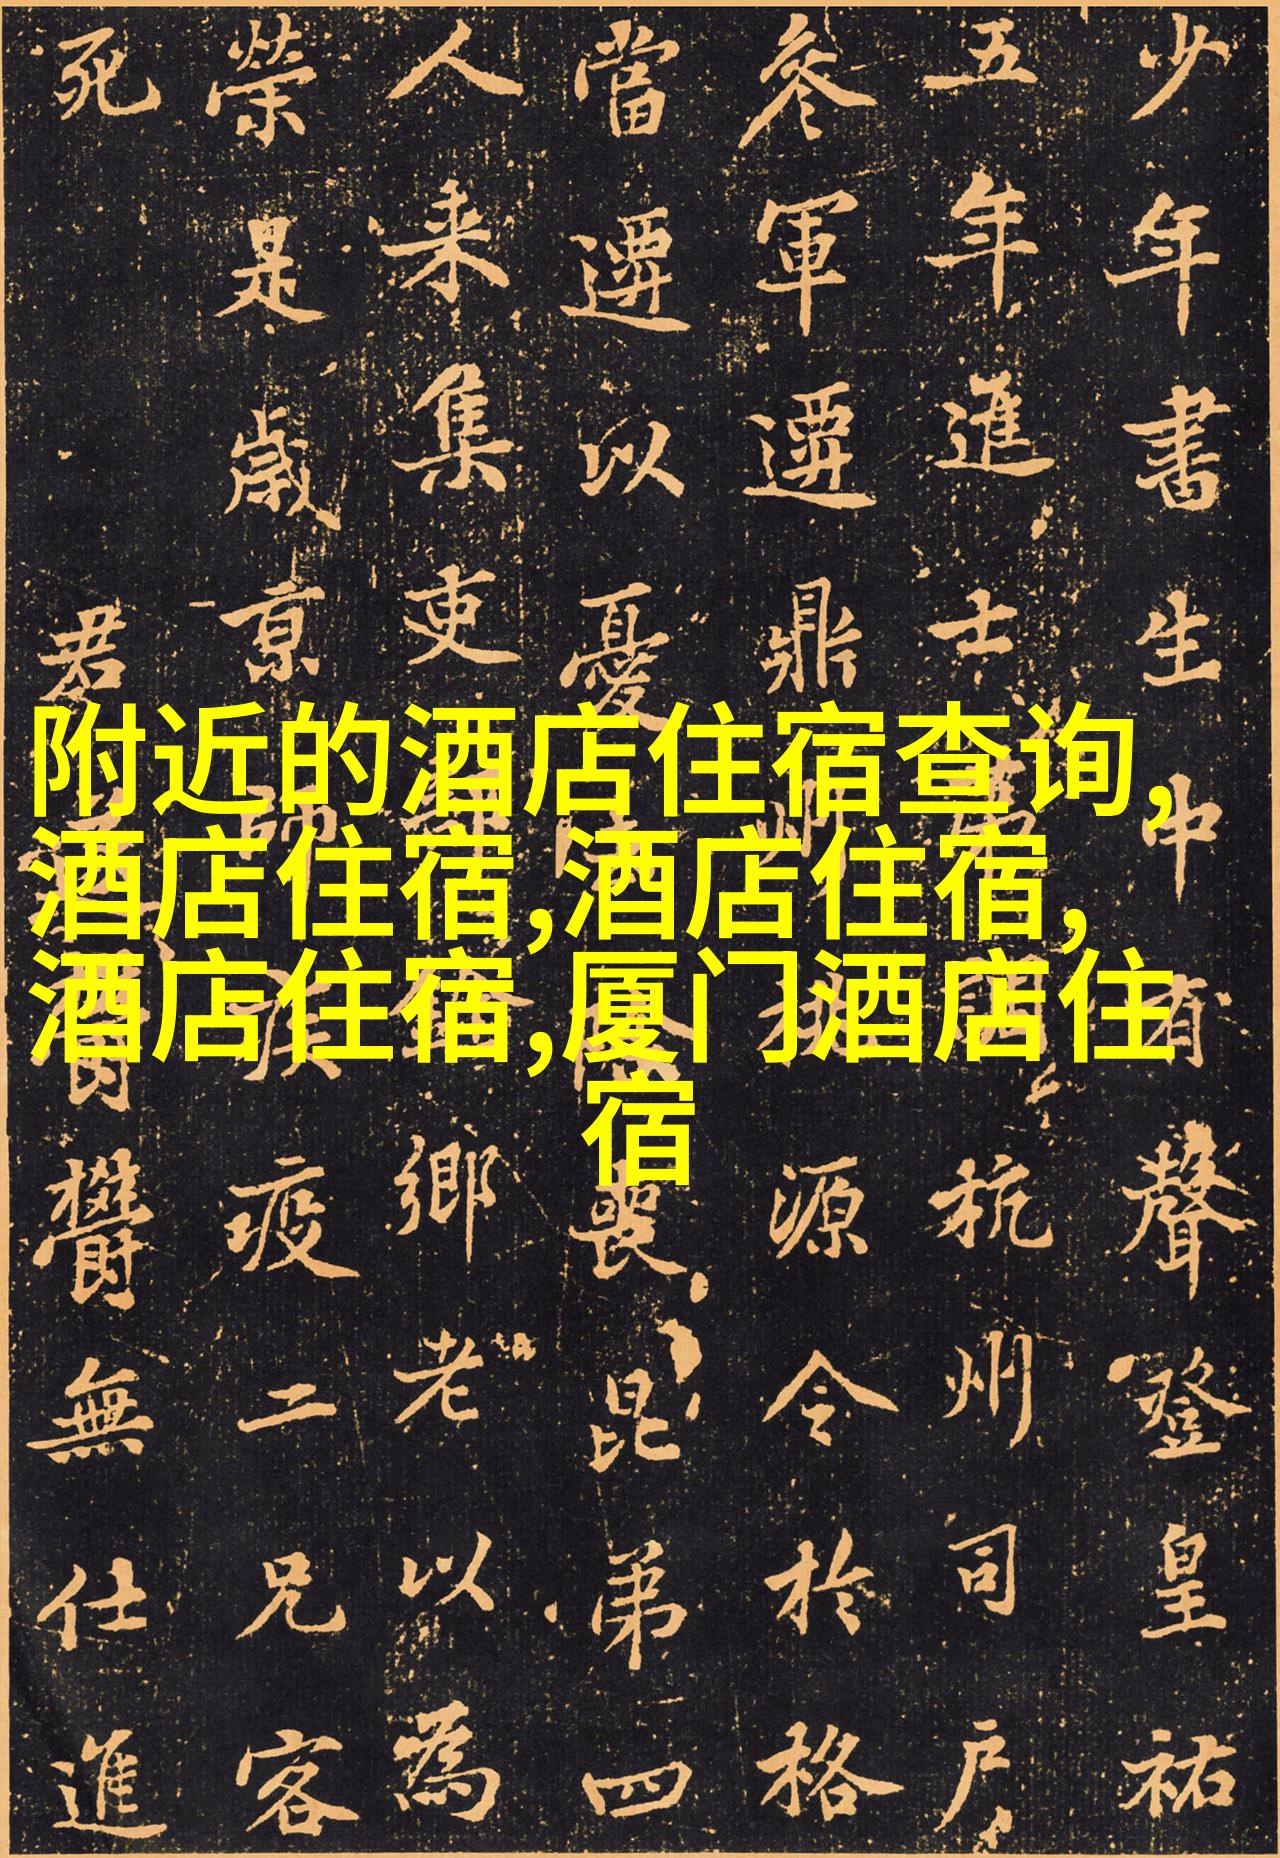 附近的酒店住宿查询,
酒店住宿,酒店住宿,
酒店住宿,厦门酒店住
宿
少年書生中有聲登皇祐
五年進士杭州司户
參軍遷鼎州桃源令於格
當遷以憂喪昆弟四
人来集吏鄉老以為
榮是歲京師疾疫二兄客
死君鬱無仕進